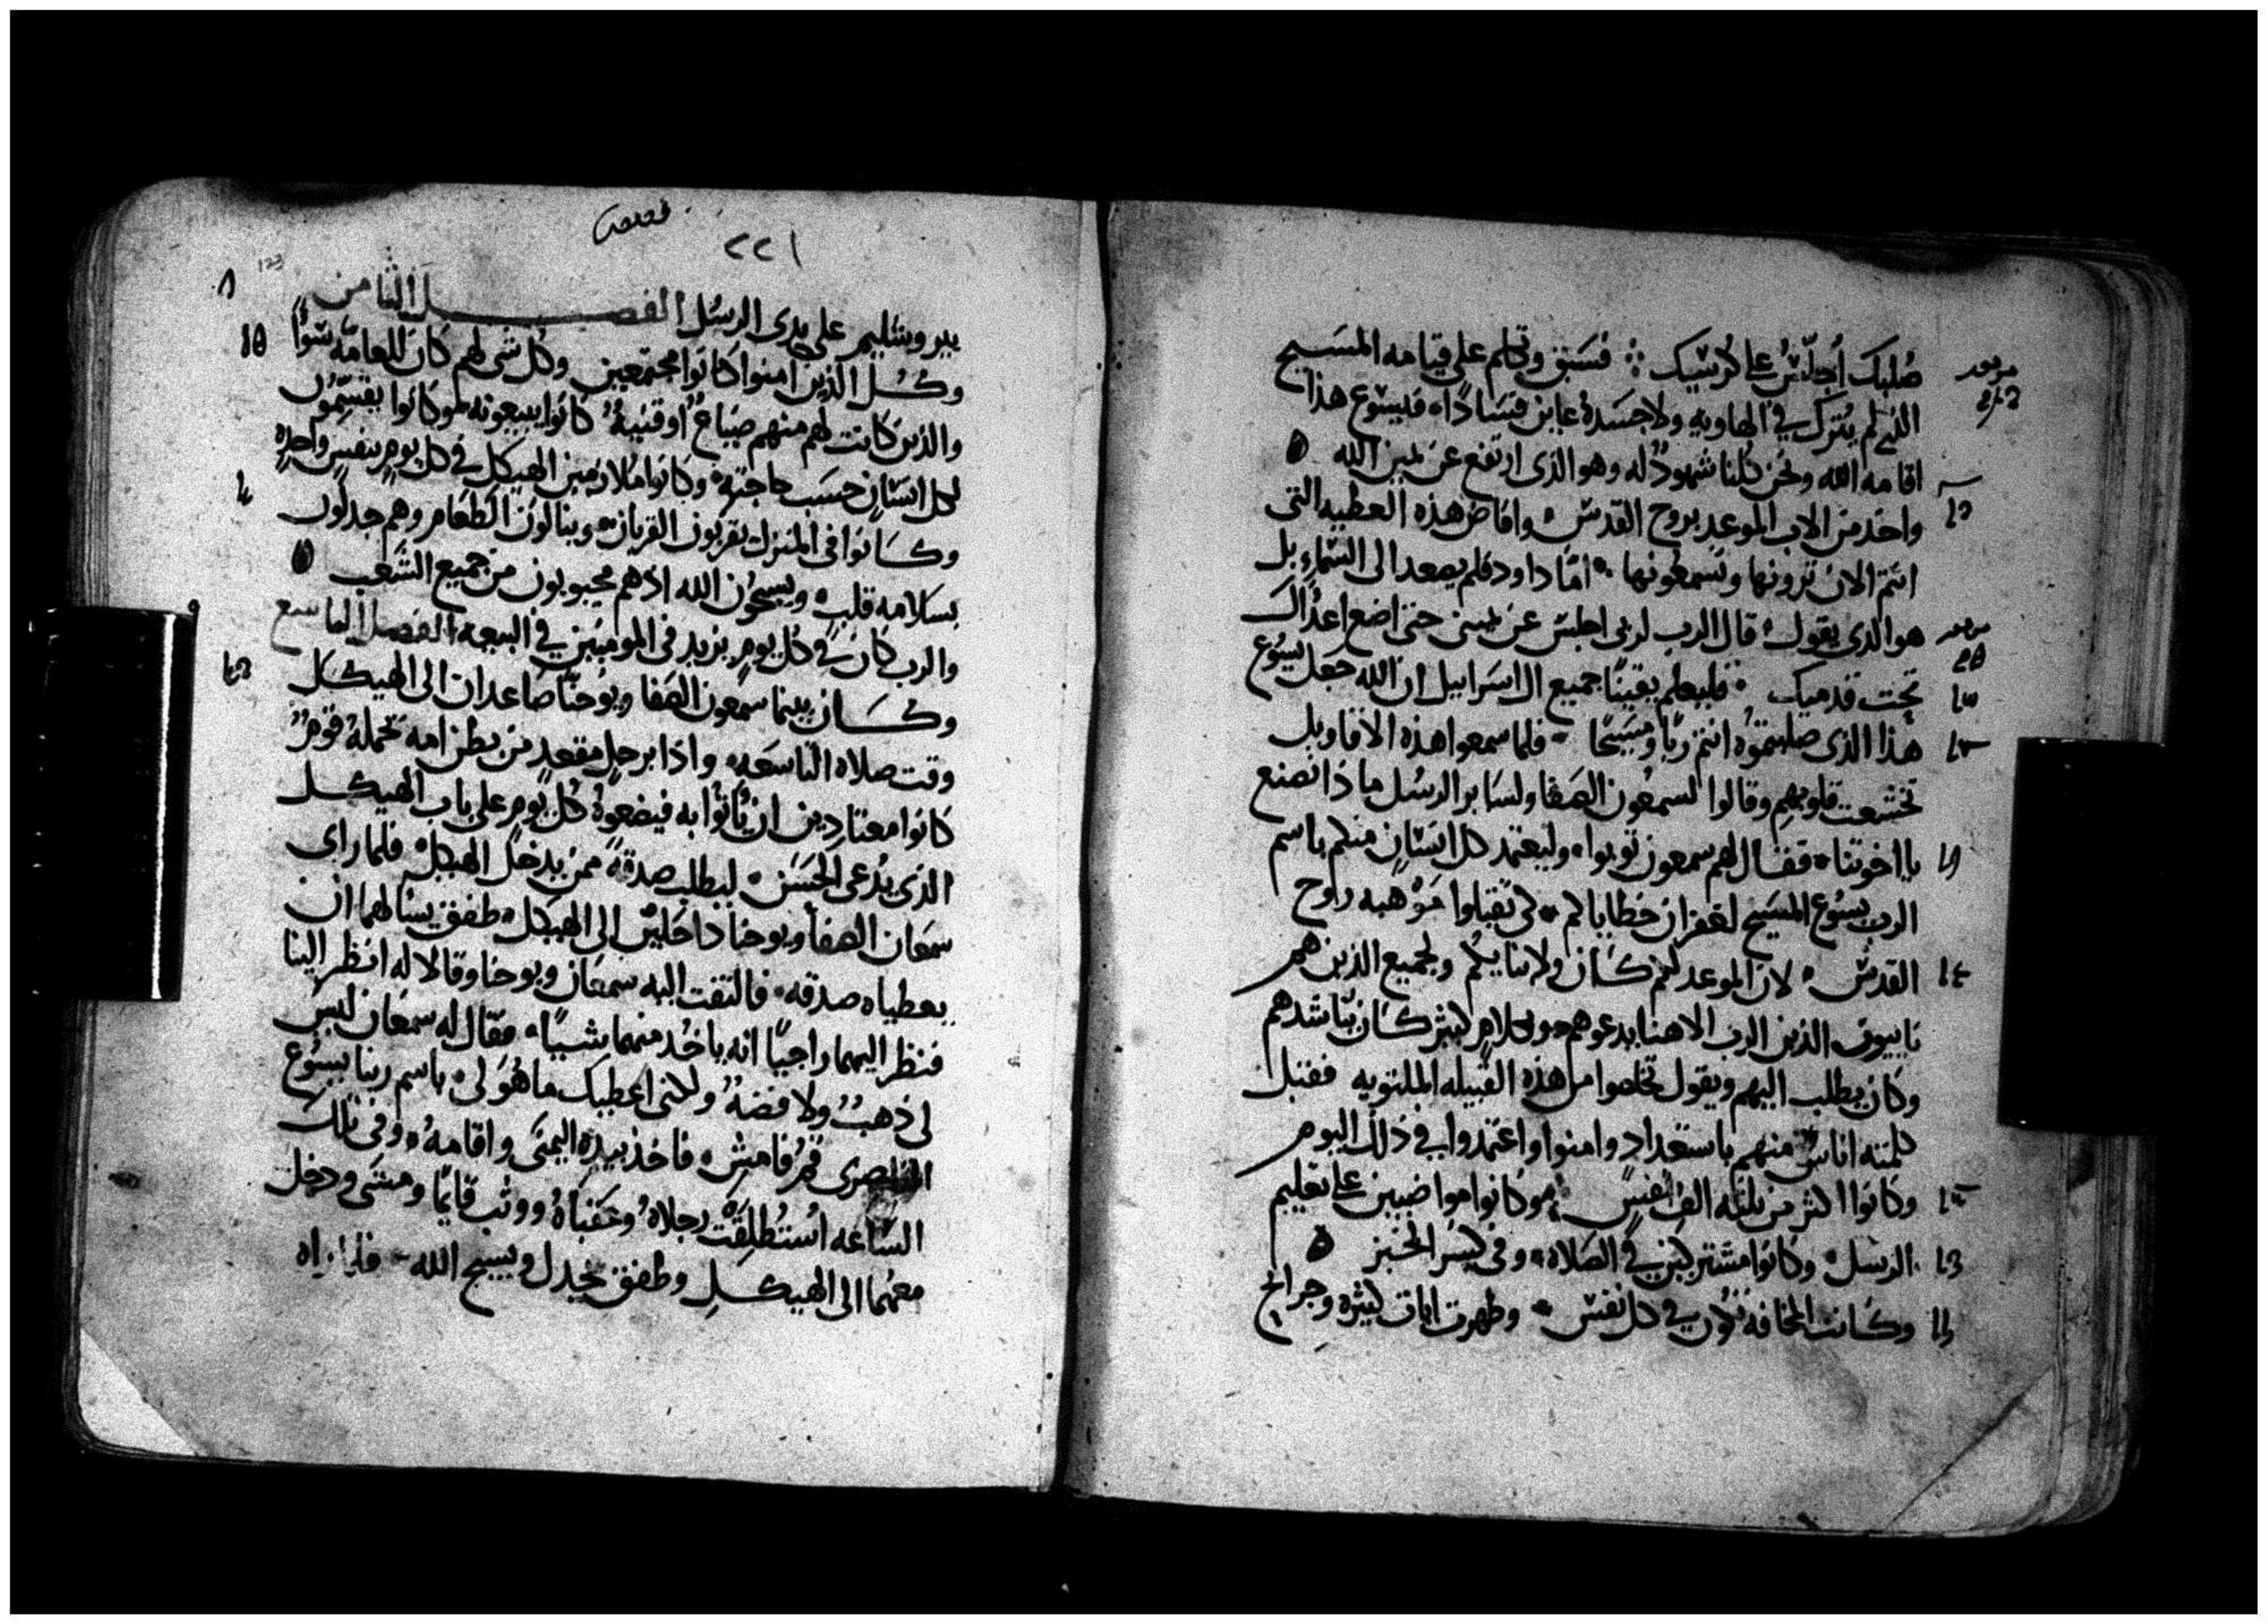 صلبك أجلّسُ على كرسيك فسبق وتكلم على قيامه المسيح
الذي لم يُترك في الهاويه ولا جسده عاين فسادًا فيسوع هذا
اقامه الله ونحن كلنا شهودٌ له وهو الذي ارتفع عن يمين الله
واخذ من الاب الموعد بروح القدس وافاض هذه العطيه التي
انتم الان ترونها وتسمعونها امّا داود فلم يصعد الى السّماء بل
هو الذي يقول قال الرب لربي اجلس عن يميني حتى اضع اعداك
تحت قدميك فليعلم يقينًا جميع ال اسراييل ان الله جعل يسوع
هذا الذي صلبتموُه انتم ربًا ومسيحًا فلما سمعوا هذه الاقاويل
تخشعت قلوبهم وقالوا لسمعون الصفا ولساير الرسُل ماذا نصنع
يا اخوتنا فقال لهم سمعون توبوا وليعتمد كل انسانٍ منكم باسم
الرب يسُوع المسيح لغفران خطاياكم كي تقبلوا مَوْهبه روح
القدس لان الموعد لكم كان ولابنايكم ولجميع الذين هم
ناييون الذين الرب الاهنا يدعوهم وبكلامٍ كثير كان يناشدهم
وكان يطلب اليهم ويقول تخلصوا من هذه القبيله الملتويه فقبل
كلمته اناسٌ منهم باستعداد وامنوا واعتمدوا في ذلك اليوم
وكانوا اكثر من ثلثه الف نفسٍ وكانوا مواضبين على تعليم
الرسل وكانوا مشتركين في الصلاه وفي كسر الخبز
وكانت المخافه تكون في كل نفس وظهرت ايات كثيره وجرايح
٢٢١
بيروشليم على يدى الرسُل الفصل الثامن
وكُل الذين امنوا كانوا مجتمعين وكُل شي لهم كان للعامه سوًا
والذين كانت لهم منهم ضياعٌ او قنيةٌ كانوا يبيعونه وكانوا يقسّمون
لكل انسانٍ حسب حاجته وكانوا ملازمين الهيكل في كل يومٍ بنفسٍ واحدهٍ
وكانوا في المنزل يقربون القربان وينالون الطعام وهم جدلون
بسلامه قلبٍ ويسبحُون الله اذ هم محبوبون من جميع الشعب
والرب كان في كل يومٍ يزيد في المومنين في البيعه الفصل التاسع
وكان بينما سمعون الصفا ويوحنّا صاعدان الى الهيكل
وقت صلاه التاسعه واذا برجلٍ مقعدٍ من بطن امه تحمله قومٌ
كانوا معتادين ان ياتوا به فيضعوهُ كُل يومٍ على باب الهيكل
الذي يُدعى الحسَن ليطلب صدقةً ممن يدخل الهيكل فلما راى
سمعان الصفا ويوحنا داخلين الى الهيكل طفق يسالهما ان
يعطياه صدقه فالتفت اليه سمعان ويوحنا وقالا له انظر الينا
فنظر اليهما راجيًا انه ياخُد منهما شييًا فقال له سمعان ليس
لى ذهبٌ ولا فضهٌ ولكني اعطيك ما هُو لي باسم ربنا يسوع
الناصرى قمُ فامش فاخذ بيده اليمنى واقامهُ وفي تلك
السّاعه استُطلِقت رجلاهُ وعقباهُ ووثب قايمًا ومشى ودخل
معهُما الى الهيكل وطفق يجدل ويسبح الله